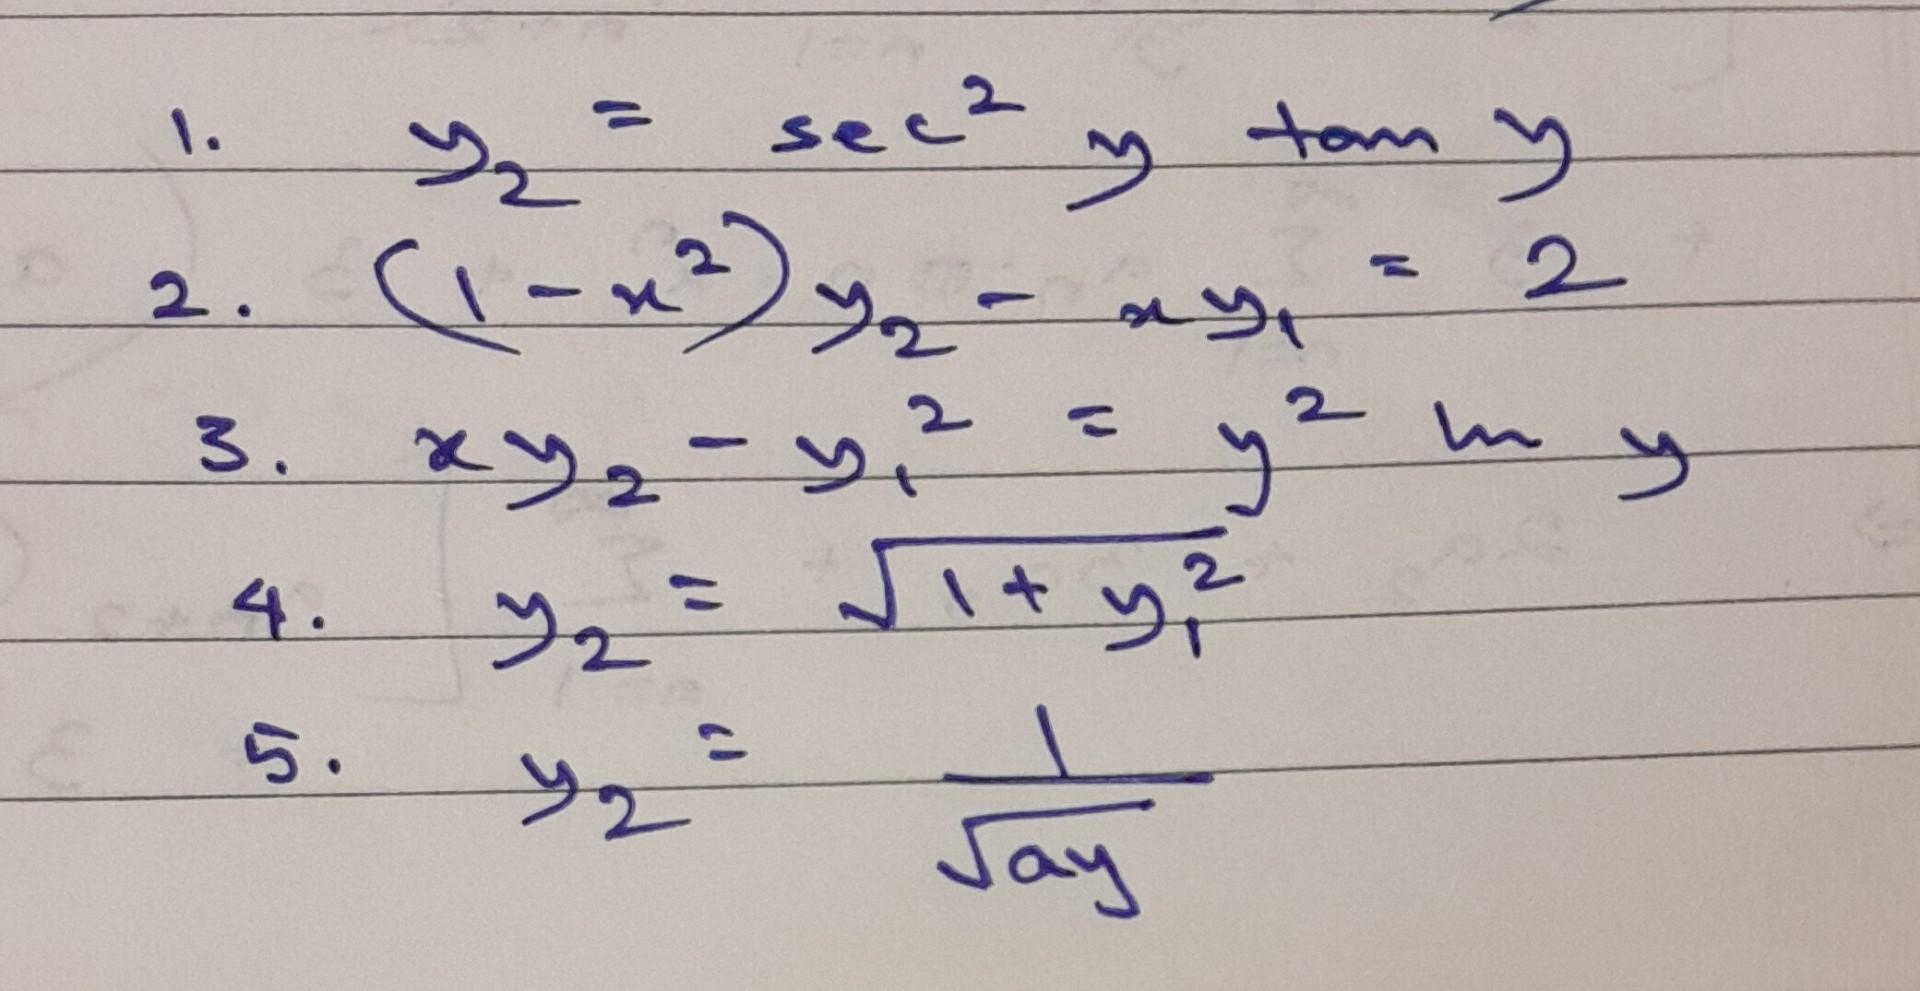 1. y₂ = sec² y tan y
2. (1 - x²) y₂ - x y₁ = 2
3. x y₂ - y₁² = y² ln y
4. y₂ = √(1 + y₁²)
5. y₂ = 1/√(ay)